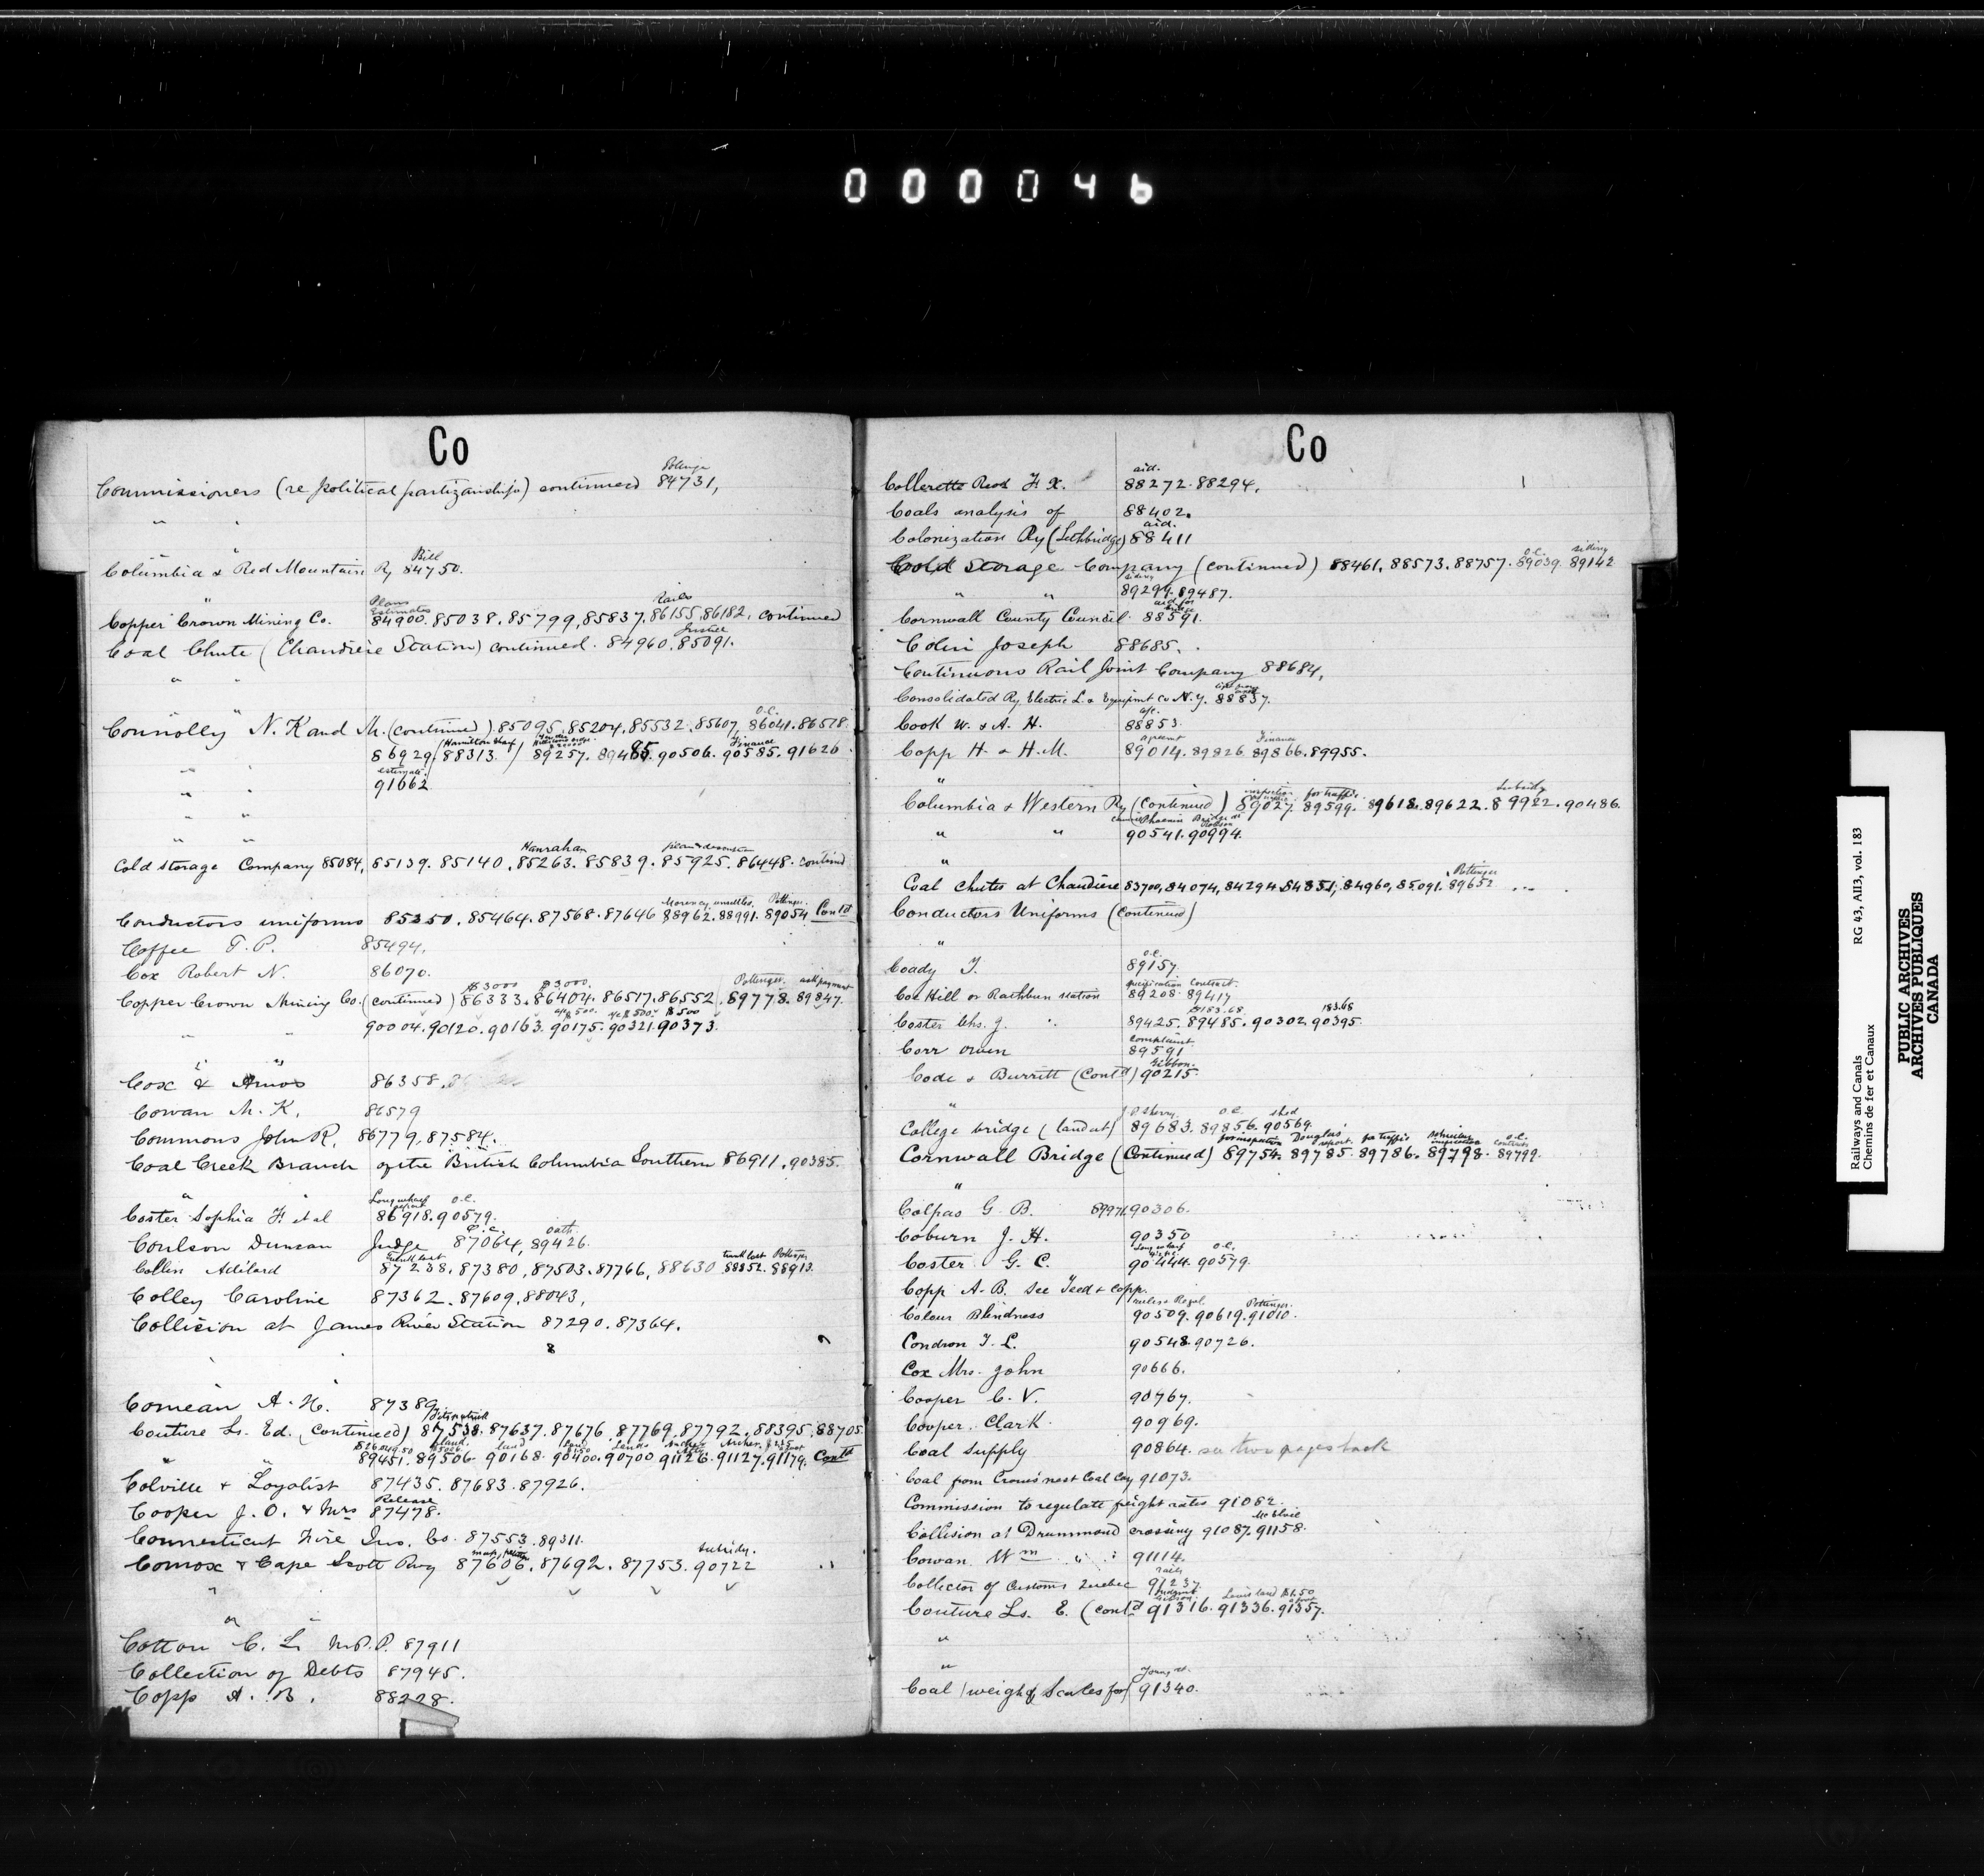 000046
Co
Pottinger
Commissioners (re political partizanship) continued 84731,
" "
Bill
Columbia & Red Mountain Ry 84750.
"
Plans Estimates Rails
Copper Crown Mining Co. 84900. 85038. 85799, 85837, 86155, 86182, continued
Justice
Coal Chute (Chaudière Station) continued. 84960. 85091.
" "
O.C.
Connolly N. K and M. (continued) 85095, 85204, 85532. 85607, 86041. 86578
Hamilton Wharf Finance
" " 86929, 88313. / 89257. 90506. 90585. 91626.
estimate.
" " 91662
" "
" "
Hanrahan
Cold storage Company 85084, 85139. 85140. 85263. 85839. 85925. 86448. continued
Pottinger.
Conductors uniforms 85250. 85464. 87568. 87646 88962. 88991. 89054 Contd
Coffee T. P. 85494.
Cox Robert N. 86070.
$3000 $3000. Pottinger. ask payment
Copper Crown Mining Co. (continued) 86333. 86404. 86517. 86552. 89778. 89847.
$500
" " 90004. 90120. 90163. 90175. 90321. 90373.
" "
Cox & Amos 86358.
Cowan M. K. 86579
Commons John R. 86779, 87584.
Coal Creek Branch of the British Columbia Southern 86911, 90385.
"
Long wharf O.C.
Coster Sophia F. et al 86918. 90579.
O.C. oath.
Coulson Duncan Judge 87064, 89426.
trunk lost trunk lost Pottinger
Collin Adilard 87238. 87380, 87503. 87766, 88630 88852. 88913.
Colley Caroline 87362. 87609. 88043,
Collision at James River Station 87290. 87364.
8
Comeau A. H. 87389
Fitzpatrick
Couture Ls. Ed. (continued) 87538. 87637. 87676. 87769, 87792. 88395. 88705
land land Lands Archer
" " 89451. 89506. 90168. 90400. 90700 91126. 91127. 91179. Contd
Colville & Loyalist 87435. 87683. 87926.
Release
Cooper J. O. & Mrs 87478.
Connecticut Fire Ins. Co. 87553. 89311.
subsidy.
Comox & Cape Scott Rwy 87606. 87692. 87753. 90722
"
" "
Cotton C. L. M.P.P. 87911
Collection of Debts 87945.
Copp A. B. 88228.
Co
aid.
Collerette Revd F. X. 88272. 88294.
Coals analysis of 88402.
aid.
Colonization Ry (Lethbridge) 88411
O.C. siding
Cold Storage Company (continued) 88461, 88573. 88757. 89039. 89142
siding
" " 89299. 89487.
aid for bridge
Cornwall County Council. 88591.
Colin Joseph 88685.
Continuous Rail Joint Company 88684,
Consolidated Ry Electric L. & Equipmt co N.Y. 88857.
a/c.
Cook W. & A. H. 88853.
agreemt Finance
Copp H. & H. M. 89014. 89826. 89866. 89955.
"
inspection for traffic. subsidy
Columbia & Western Ry (continued) 89027. 89599. 89618. 89622. 89922. 90486.
Phoenix
" " 90541. 90994.
"
Pottinger
Coal chutes at Chaudiere 83700, 84074, 84294. 54851, 84960, 85091. 89652
Conductors Uniforms (continued)
"
O.C.
Coady T. 89157.
specification Contract.
Coe Hill or Rathbun station 89208. 89417
$183.68. 183.68
Coster Chs. J. 89425. 89485. 90302. 90395.
Complaint.
Corr Owen 89591
Gibbon.
Code & Burritt (Contd) 90215.
"
J. P. Sherry. O.C. shed
College bridge (land at) 89683. 89856. 90569.
for inspection Douglas' report. for traffic inspection O.C. contract
Cornwall Bridge (Continued) 89754. 89785. 89786. 89798. 89799.
"
Colpas G. B. 89971. 90306.
Coburn J. H. 90350
Long wharf O.C.
Coster G. C. 90444. 90579.
Copp A. B. see Teed & Copp.
rules & Regul. Pottinger.
Colour Blindness 90509. 90619. 91010.
Condron T. L. 90548. 90726.
Cox Mrs. John 90666.
Cooper C. V. 90767.
Cooper Clark 90969.
Coal supply 90864. see two pages back
Coal from Crow's nest Coal Coy 91073.
Commission to regulate freight rates 91062.
Collision at Drummond crossing 91087. 91158.
Cowan Wm 91114.
rails
Collector of Customs Quebec 91237.
Couture Ls. E. (contd 91316. 91336. 91357.
"
"
Coal (weight of Scales for) 91340.
Railways and Canals RG 43, AII3, vol. 183
Chemins de fer et Canaux
PUBLIC ARCHIVES
ARCHIVES PUBLIQUES
CANADA